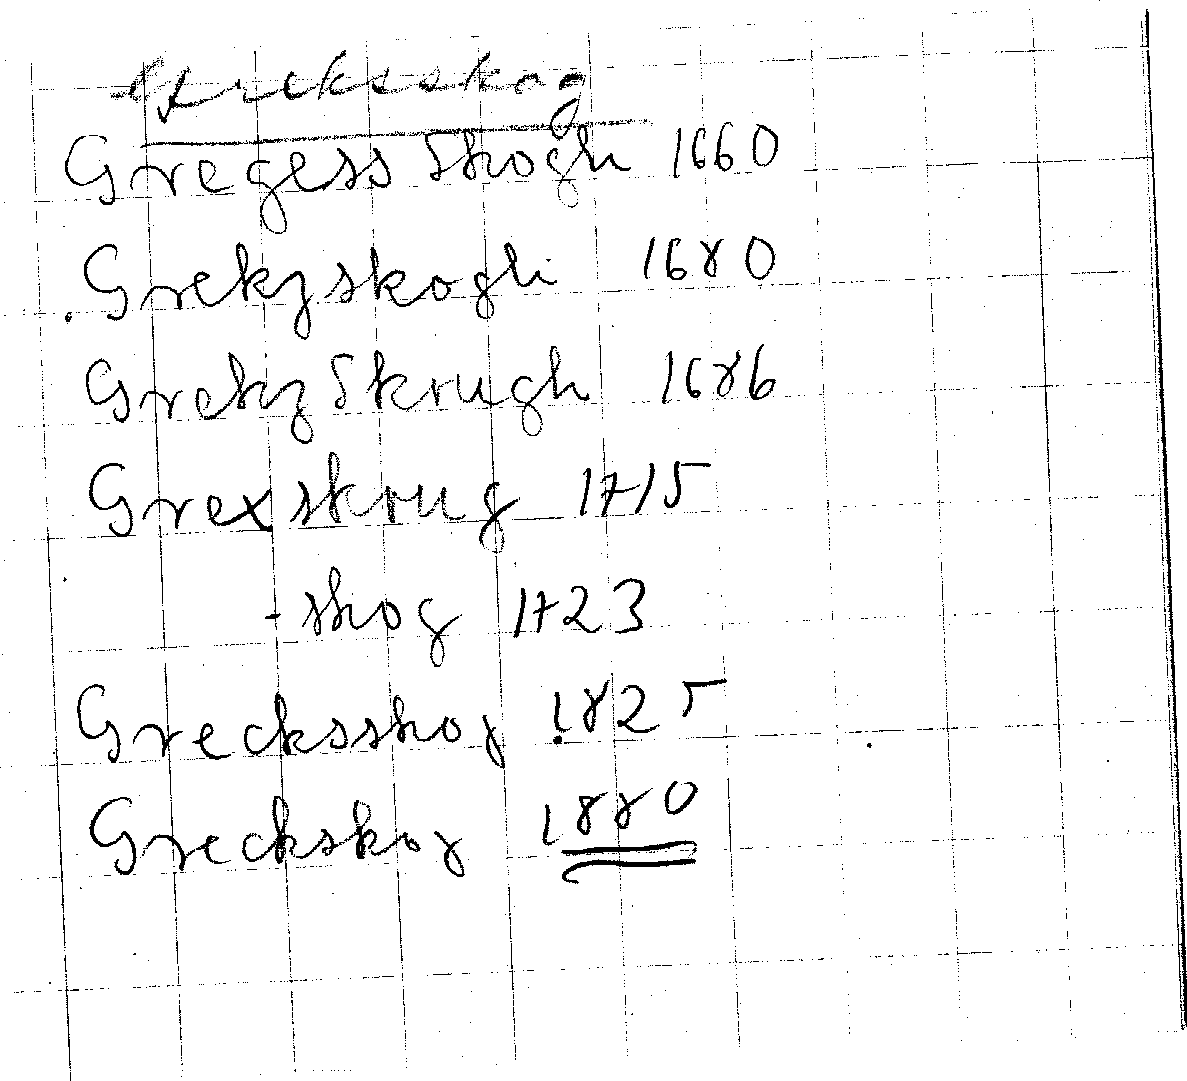 Greksskog
Gregess Skogh 1660
Grekzskogh 1680
Grekz Skrugh 1686
Grexskrug 1715
-skog 1723
Grecksskog 1825
Greckskog 1880